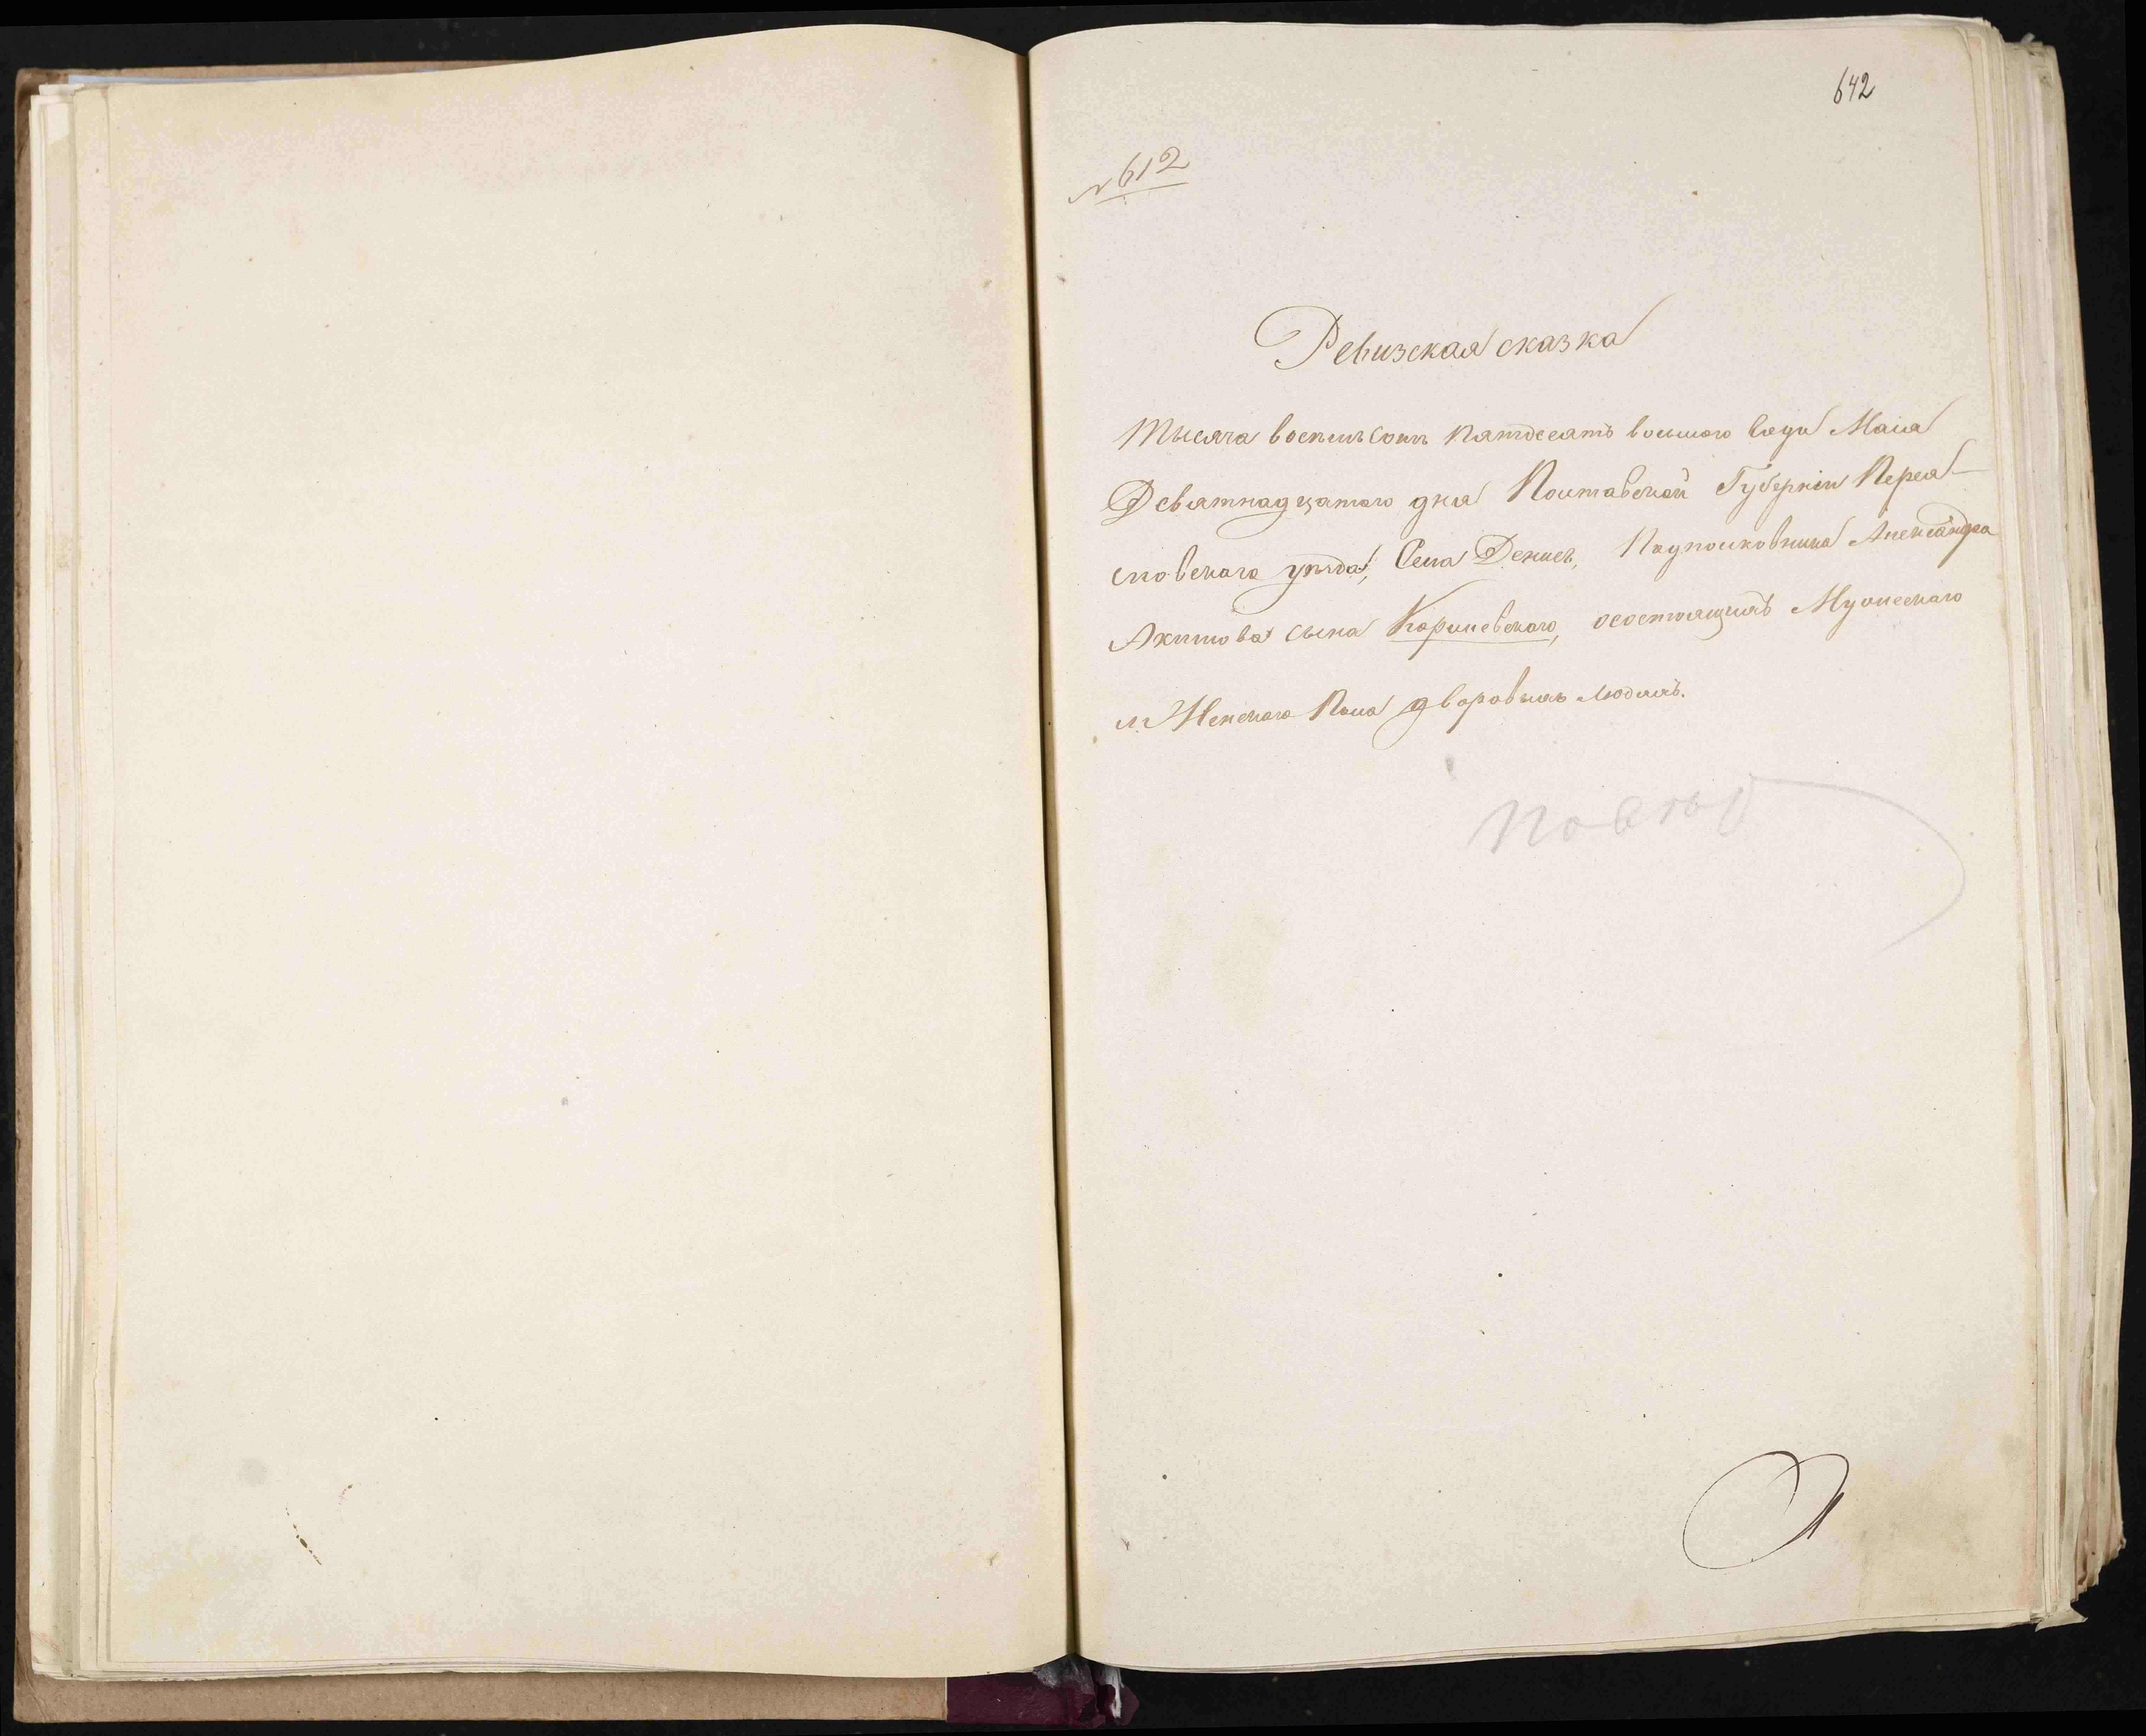 642
№ 612
Ревизская сказка
Тысяча восемьсотъ пятдесятъ восмого года Маиа
Девятнадцатого дня Полтавской Губерніи Перея-
словскаго уѣзда, Села Денисъ, Подполковника Александра
Акимова сына Каришевского, осостоящихъ Мужескаго
и Женскаго Пола дворовыхъ людяхъ.